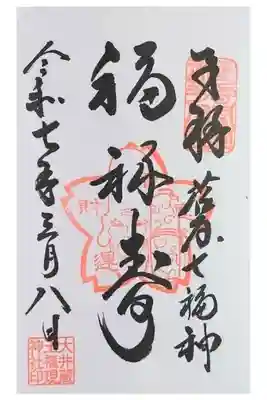 奉拝 荏原七福神
福禄寿
令和七年三月八日
大井蔵
王権現
神社印